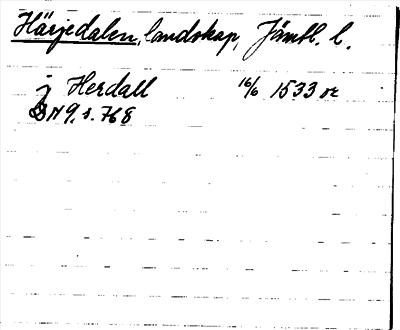 Härjedalen, landskap, Jämtl. l.
j Herdall 16/6 1533 or
DN 9, s. 768